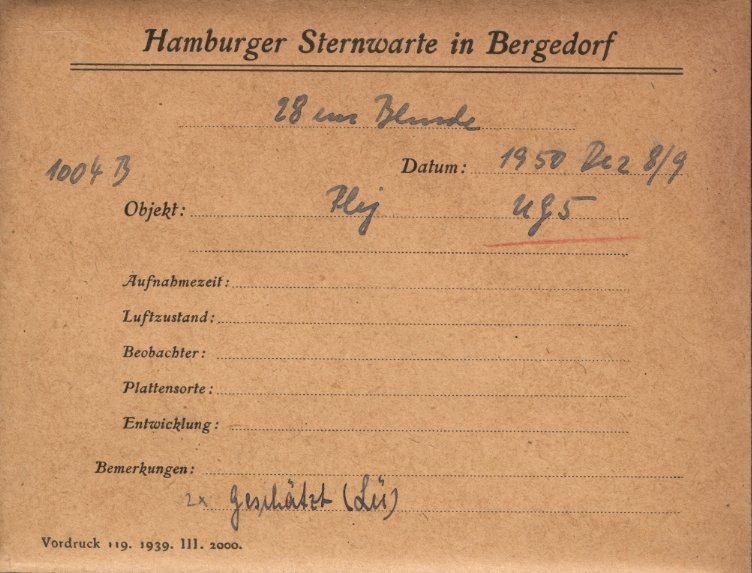 Hamburger Sternwarte in Bergedorf
28 cm Blende
1004 B Datum: 1950 Dez 8/9
Objekt: Plej UG5
Aufnahmezeit:
Luftzustand:
Beobachter:
Plattensorte:
Entwicklung:
Bemerkungen:
2x geschätzt (Lü)
Vordruck 119. 1939. III. 2000.